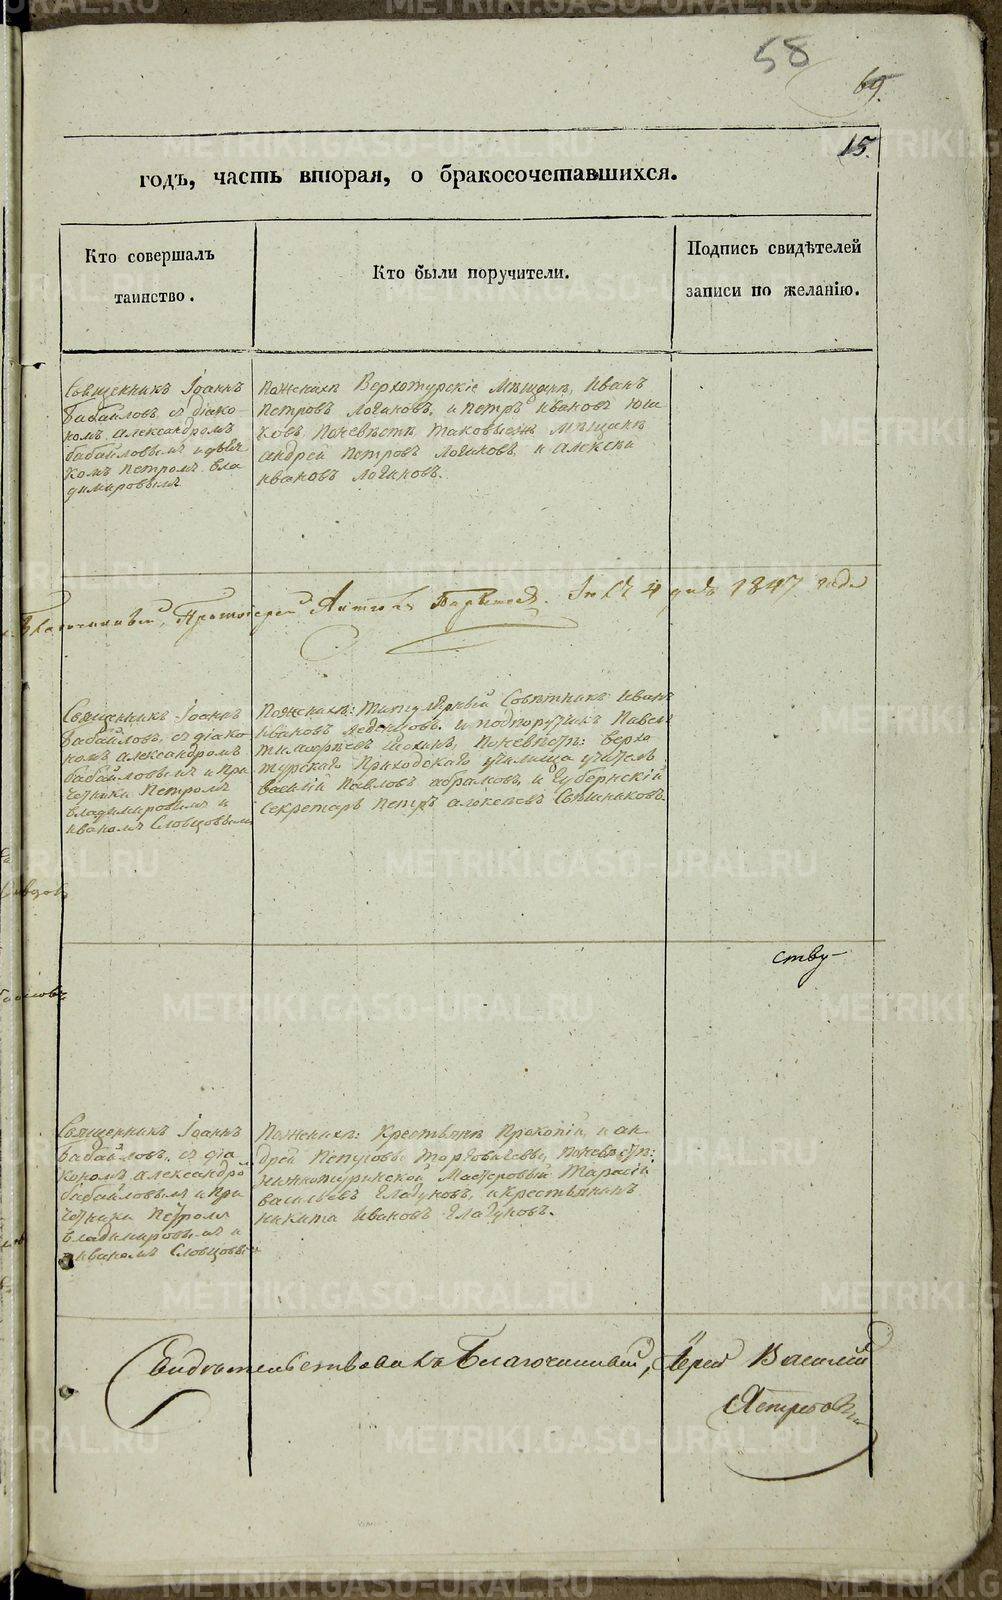 58
69.
15.
годъ, часть вторая, о бракосочетавшихся.
Кто совершалъ
таинство.
Кто были поручители.
Подпись свидѣтелей
записи по желанію.
Священникъ Іоаннъ
Бабайловъ, съ діако-
номъ александромъ
бабайловымъ и дьяч
комъ петромъ вла
димировымъ
Поженихѣ Верхотурскіе Мѣщане, Иванъ
Петровъ Логиновъ, и петръ ивановъ
ковъ, Поневѣстѣ, таковыежъ мѣщане
андрей петровъ логиновъ, и алексѣй
ивановъ логиновъ.
Благочинный, Протоіерей Антоній 4 дня 1847 года
Священникъ Іоаннъ
бабайловъ, съ діако
номъ александромъ
бабайловымъ и при
четники Петромъ
владимировымъ и
иваномъ Словцовымъ
Поженихѣ: Титулярный Совѣтникъ Иванъ
ивановъ и подпоручикъ Павелъ
тимофѣевъ Поневѣстѣ: верхо
турскаго Приходскаго училища учитель
василій Павловъ и Губернскій
секретарь петръ алексѣевъ Свѣшниковъ.
ству-
Священникъ Іоаннъ
бабайловъ, съ діа-
кономъ, александромъ
бабайловымъ и при
четники Петромъ
владимировымъ и
иваномъ Словцовымъ
Поженихѣ: Крестьяне Прокопій, и ан-
дрей Поневѣстѣ:
нижнотуринской Мастеровый Тарасій
васильевъ Гладуновъ, и крестьянинъ
никита ивановъ Гладуновъ.
Свидѣтельствовалъ Благочинный, Іерей Василій
Ястребовъ
METRIKI.GASO-URAL.RU